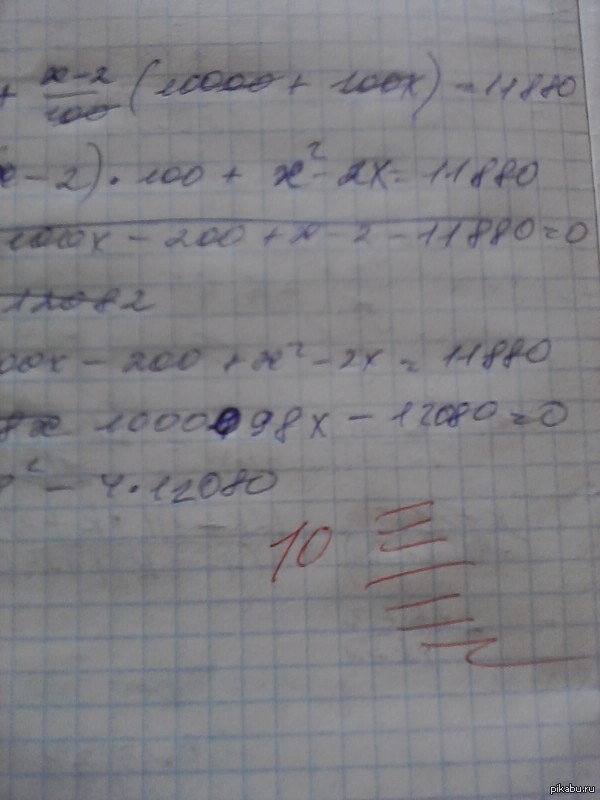 + x-2/100 (10000 + 100x) = 11880
x - 2) · 100 + x² - 2x = 11880
1000x - 200 + x - 2 - 11880 = 0
12082
00x - 200 + x² - 2x = 11880
98x - 12080 = 0
² - 4 · 12080
10
pikabu.ru